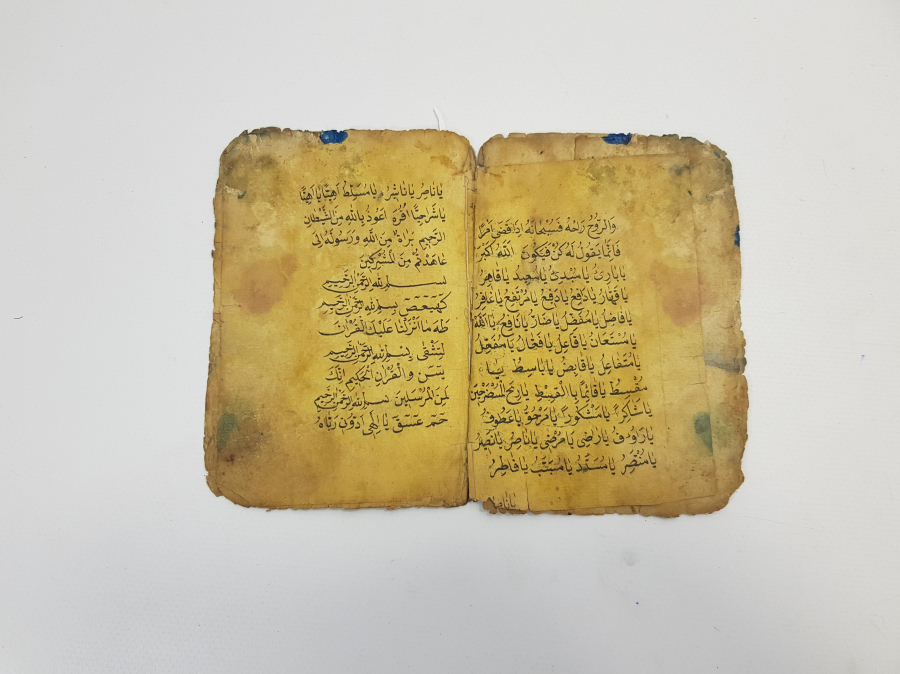 والروح راحة فسبحانه اذا قضى امرا
فانما يقول له كن فيكون الله اكبر
يا بارئ يا مبدئ يا معيد يا قاهر
يا قهار يا دافع يا مرتفع يا غافر
يا فاضل يا مفضل يا ضار يا نافع يا الله
يا مستعان يا فاعل يا فعال يا مفتعل
يا متفاعل يا قابض يا باسط
مقسط يا قائما بالقسط يا ريح المستفرحين
يا شاكرا يا مشكورا يا مرجو يا عطوف
يا رؤوف يا راضى يا مرضى يا ناصر يا نصير
يا منتصر يا مسدد يا مسبب يا فاطر
يا ناصر
يا ناصر يا ناشر يا مسلط اهيا يا اهيا
يا شراهيا اقره اعوذ بالله من الشيطان
الرجيم براة من الله ورسوله الى
عاهدتم من المشركين
بسم الله الرحمن الرحيم
كهيعص بسم الله الرحمن الرحيم
طه ما انزلنا عليك القرآن
لتشقى بسم الله الرحمن الرحيم
يس والقرآن الحكيم انك
لمن المرسلين بسم الله الرحمن الرحيم
حم عسق يا الهى ادون رباه